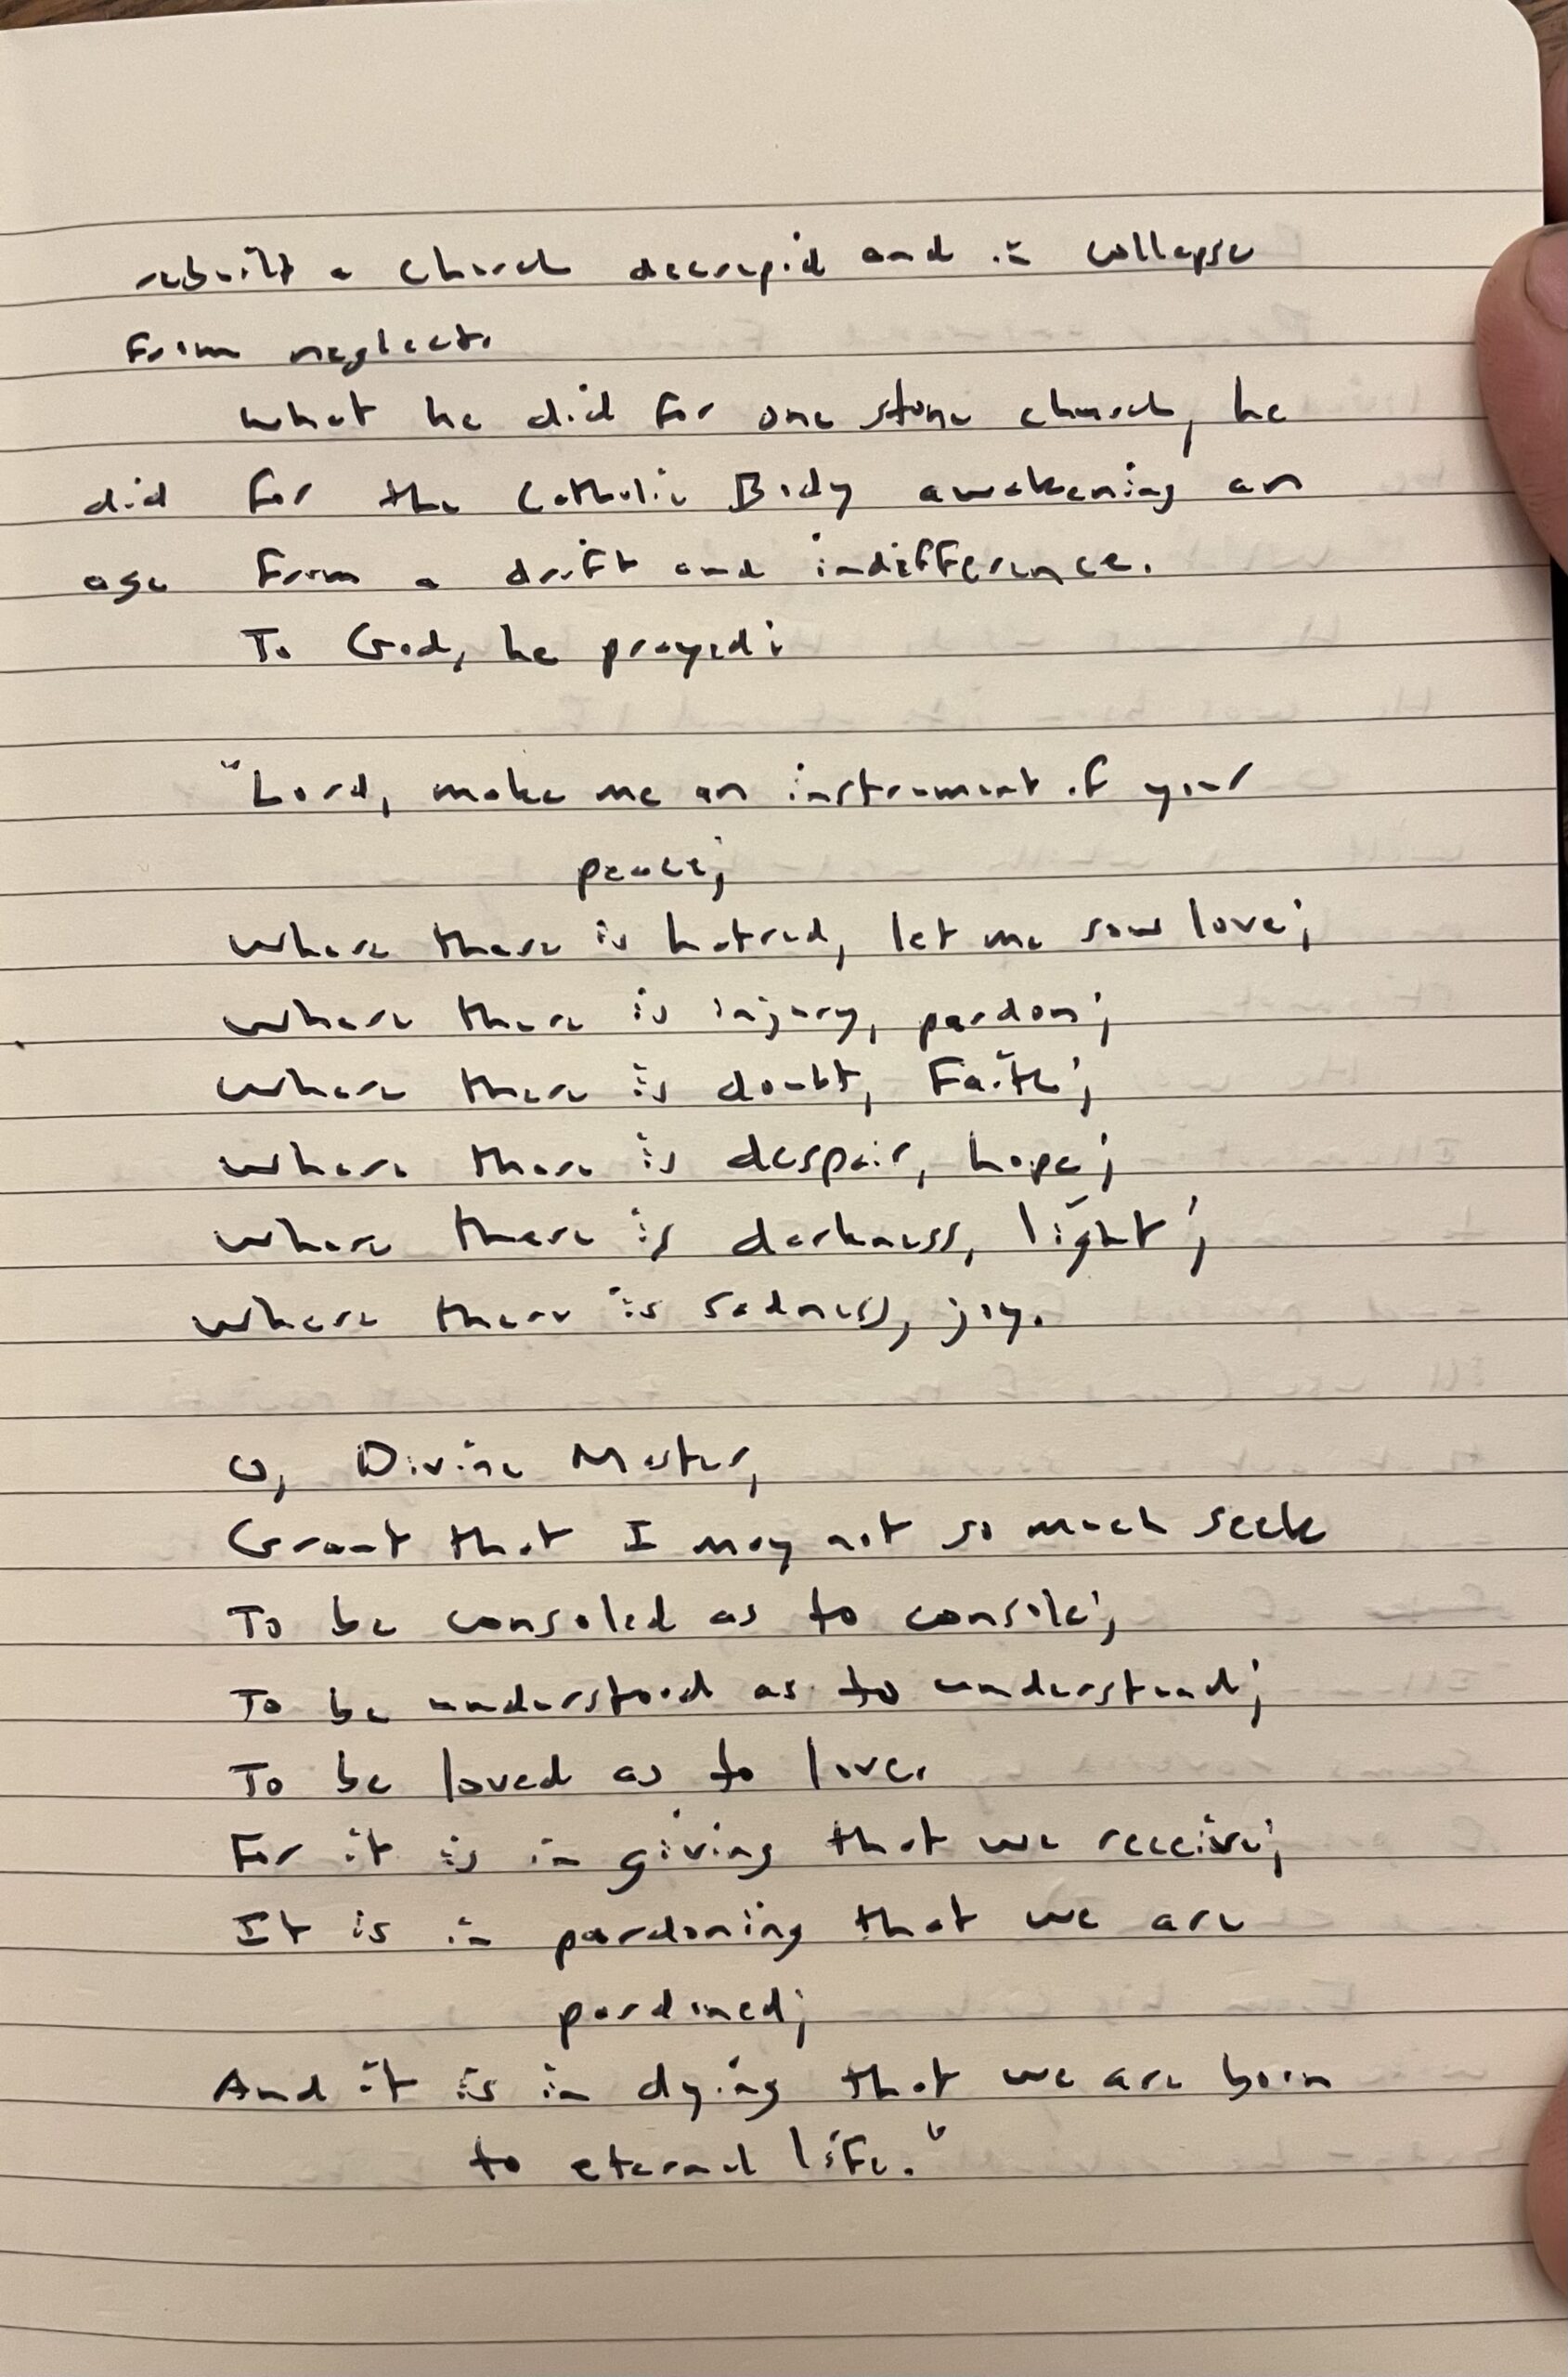 rebuild a church decrepid and in collapse
from neglect.
What he did for one stone church, he
did for the Catholic Body awakening an
age from a drift and indifference.
To God, he prayed:
"Lord, make me an instrument of your
peace;
where there is hatred, let me sow love;
where there is injury, pardon;
where there is doubt, faith;
where there is despair, hope;
where there is darkness, light;
where there is sadness, joy.
O, Divine Master,
Grant that I may not so much seek
To be consoled as to console;
To be understood as to understand;
To be loved as to love.
For it is in giving that we receive;
It is in pardoning that we are
pardoned;
And it is in dying that we are born
to eternal life."